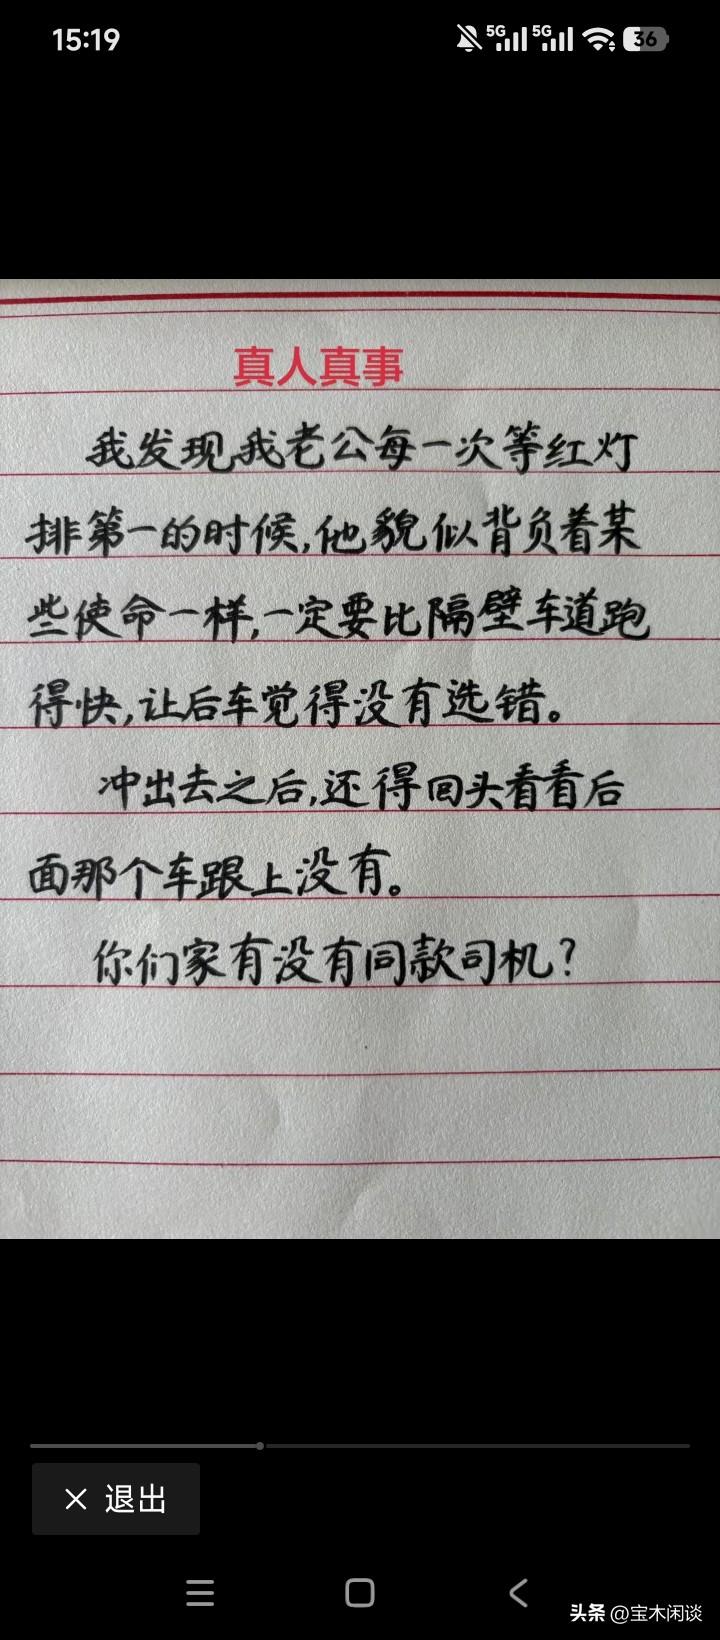 15:19
5G 5G 36
真人真事
我发现我老公每一次等红灯
排第一的时候,他貌似背负着某
些使命一样,一定要比隔壁车道跑
得快,让后车觉得没有选错。
冲出去之后,还得回头看看后
面那个车跟上没有。
你们家有没有同款司机?
退出
头条 @宝木闲谈